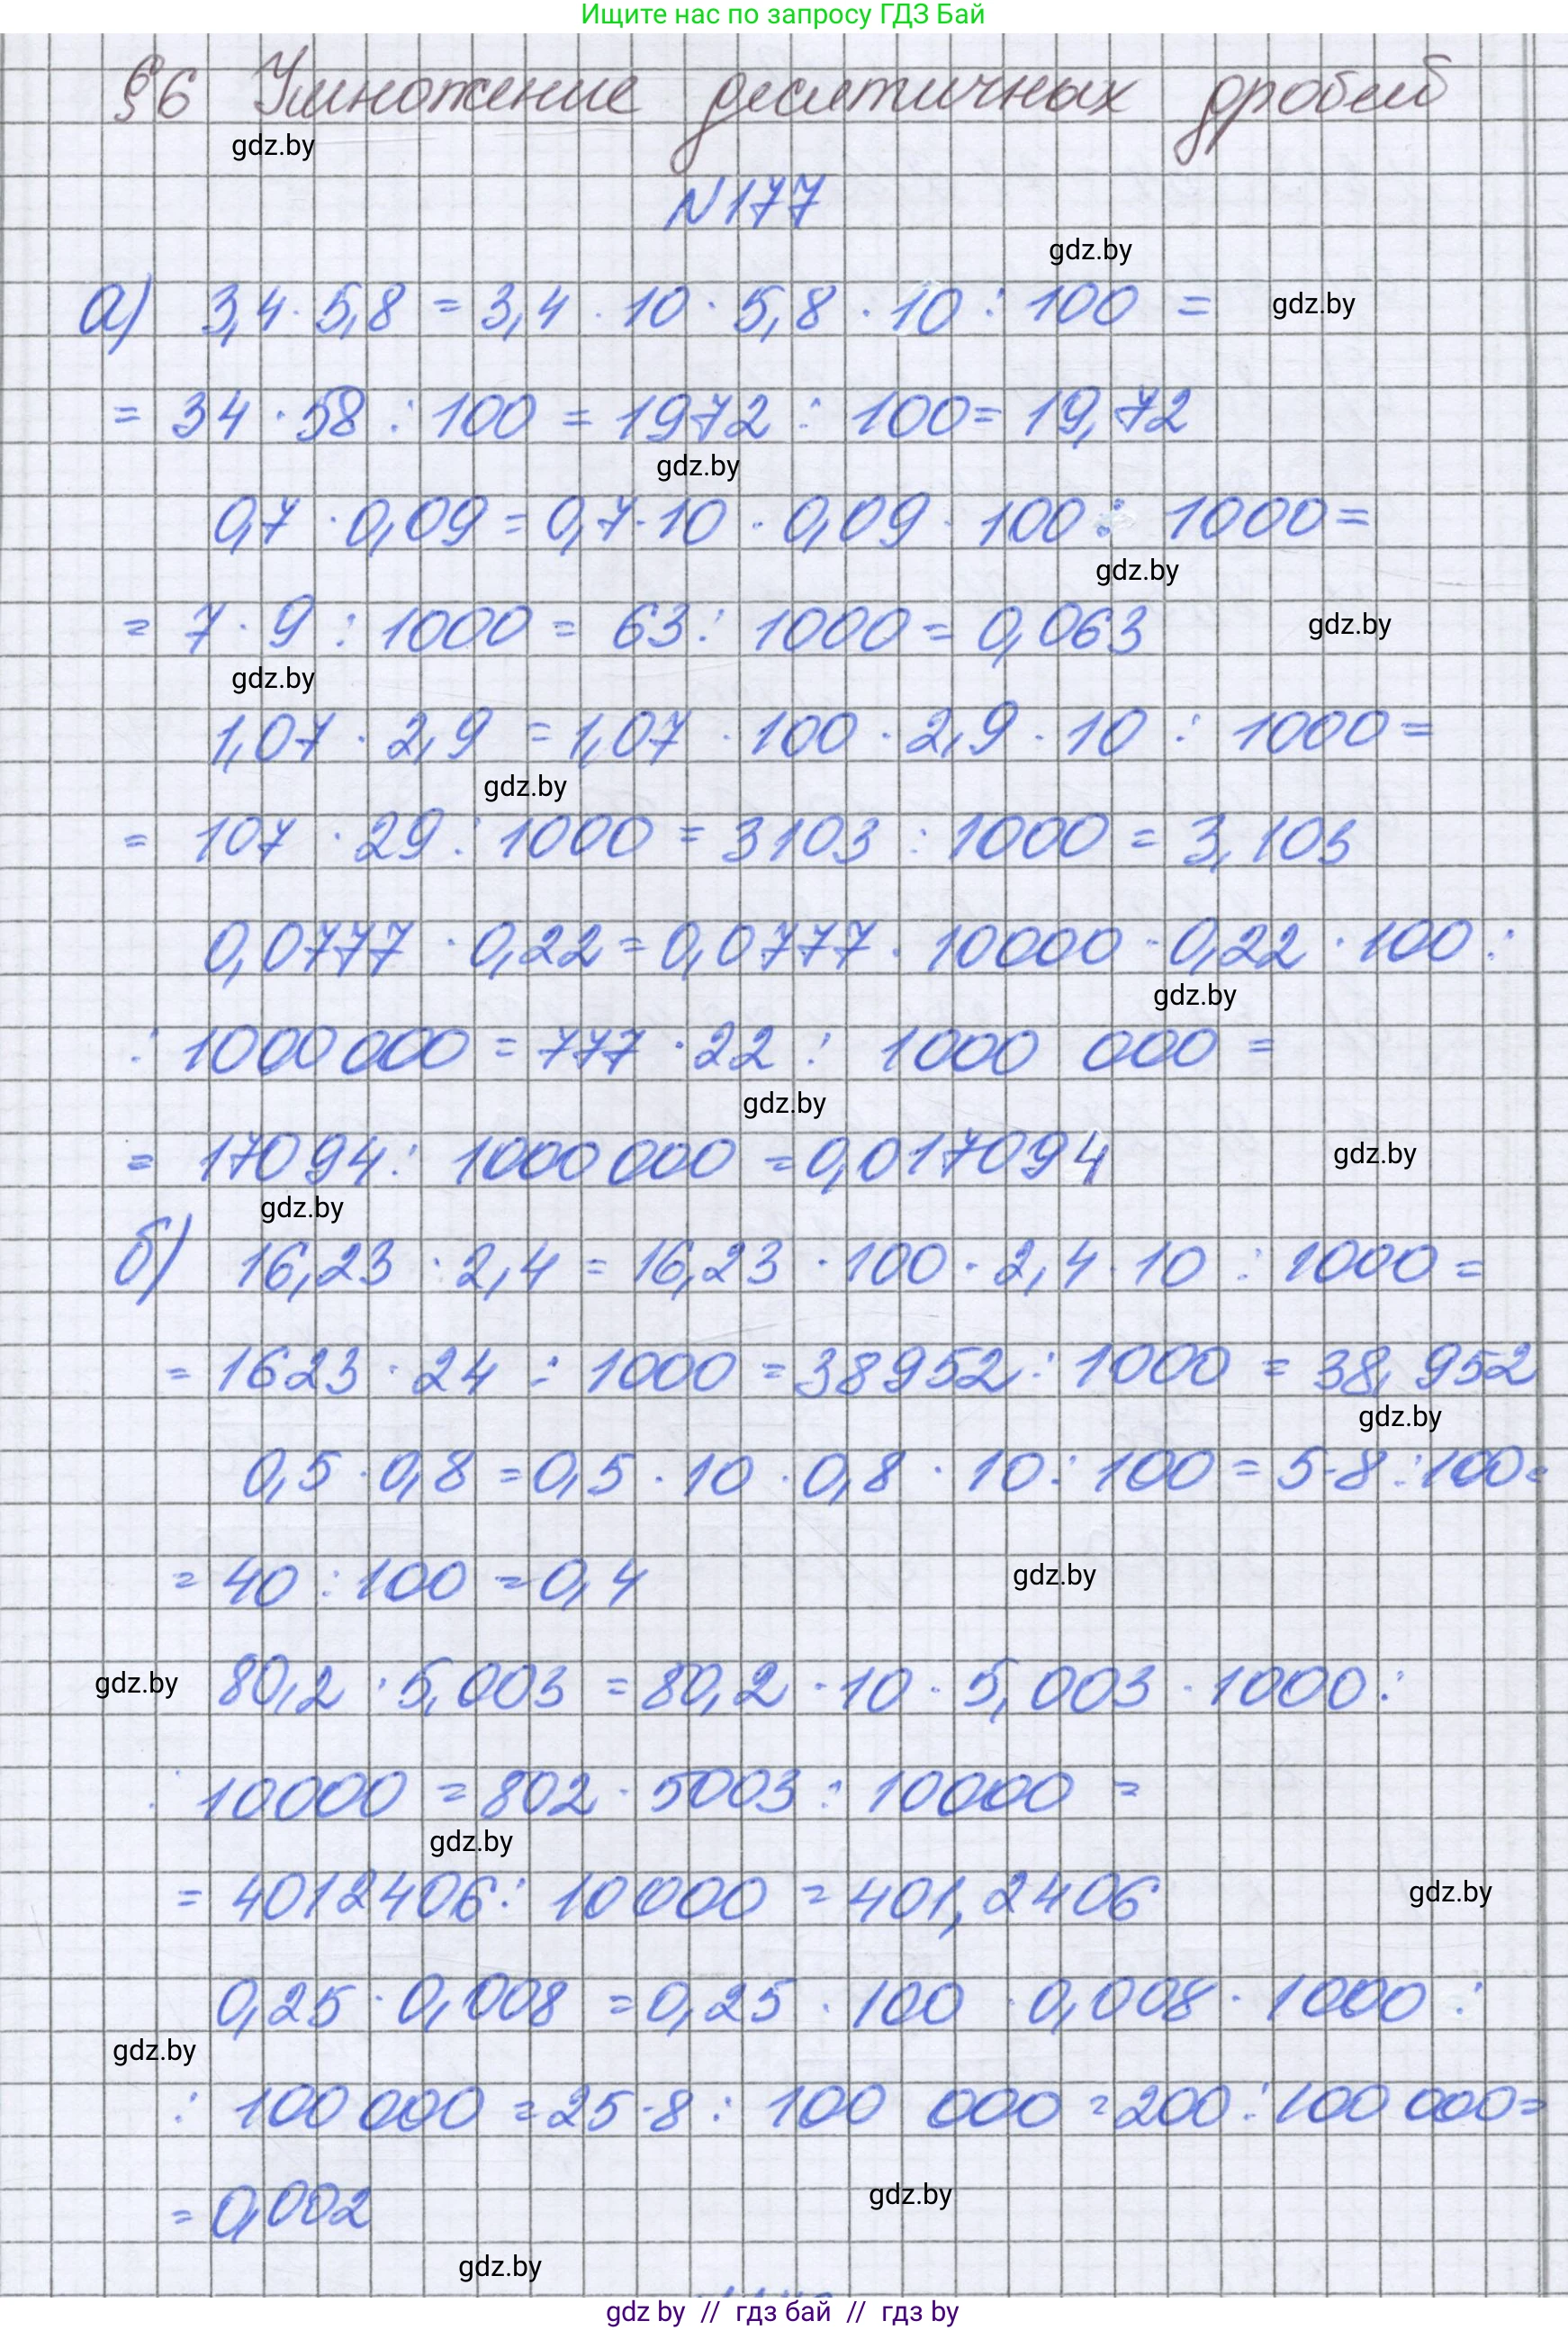 Ищите нас по запросу ГДЗ Бай
§6 Умножение десятичных дробей
gdz.by
N177
gdz.by
а) 3,4 · 5,8 = 3,4 · 10 · 5,8 · 10 : 100 =
gdz.by
= 34 · 58 : 100 = 1972 : 100 = 19,72
gdz.by
0,7 · 0,09 = 0,7 · 10 · 0,09 · 100 : 1000 =
gdz.by
= 7 · 9 : 1000 = 63 : 1000 = 0,063
gdz.by
gdz.by
1,07 · 2,9 = 1,07 · 100 · 2,9 · 10 : 1000 =
gdz.by
= 107 · 29 : 1000 = 3103 : 1000 = 3,103
0,0777 · 0,22 = 0,0777 · 10000 · 0,22 · 100 :
gdz.by
: 1000 000 = 777 · 22 : 1000 000 =
gdz.by
= 17094 : 1000 000 = 0,017094
gdz.by
gdz.by
б) 16,23 · 2,4 = 16,23 · 100 · 2,4 · 10 : 1000 =
= 1623 · 24 : 1000 = 38952 : 1000 = 38,952
gdz.by
0,5 · 0,8 = 0,5 · 10 · 0,8 · 10 : 100 = 5 · 8 : 100 =
= 40 : 100 = 0,4
gdz.by
gdz.by
80,2 · 5,003 = 80,2 · 10 · 5,003 · 1000 :
: 10000 = 802 · 5003 : 10000 =
gdz.by
= 4012406 : 10000 = 401,2406
gdz.by
0,25 · 0,008 = 0,25 · 100 · 0,008 · 1000 :
gdz.by
: 100 000 = 25 · 8 : 100 000 = 200 : 100 000 =
= 0,002
gdz.by
gdz.by
gdz by // гдз бай // гдз by